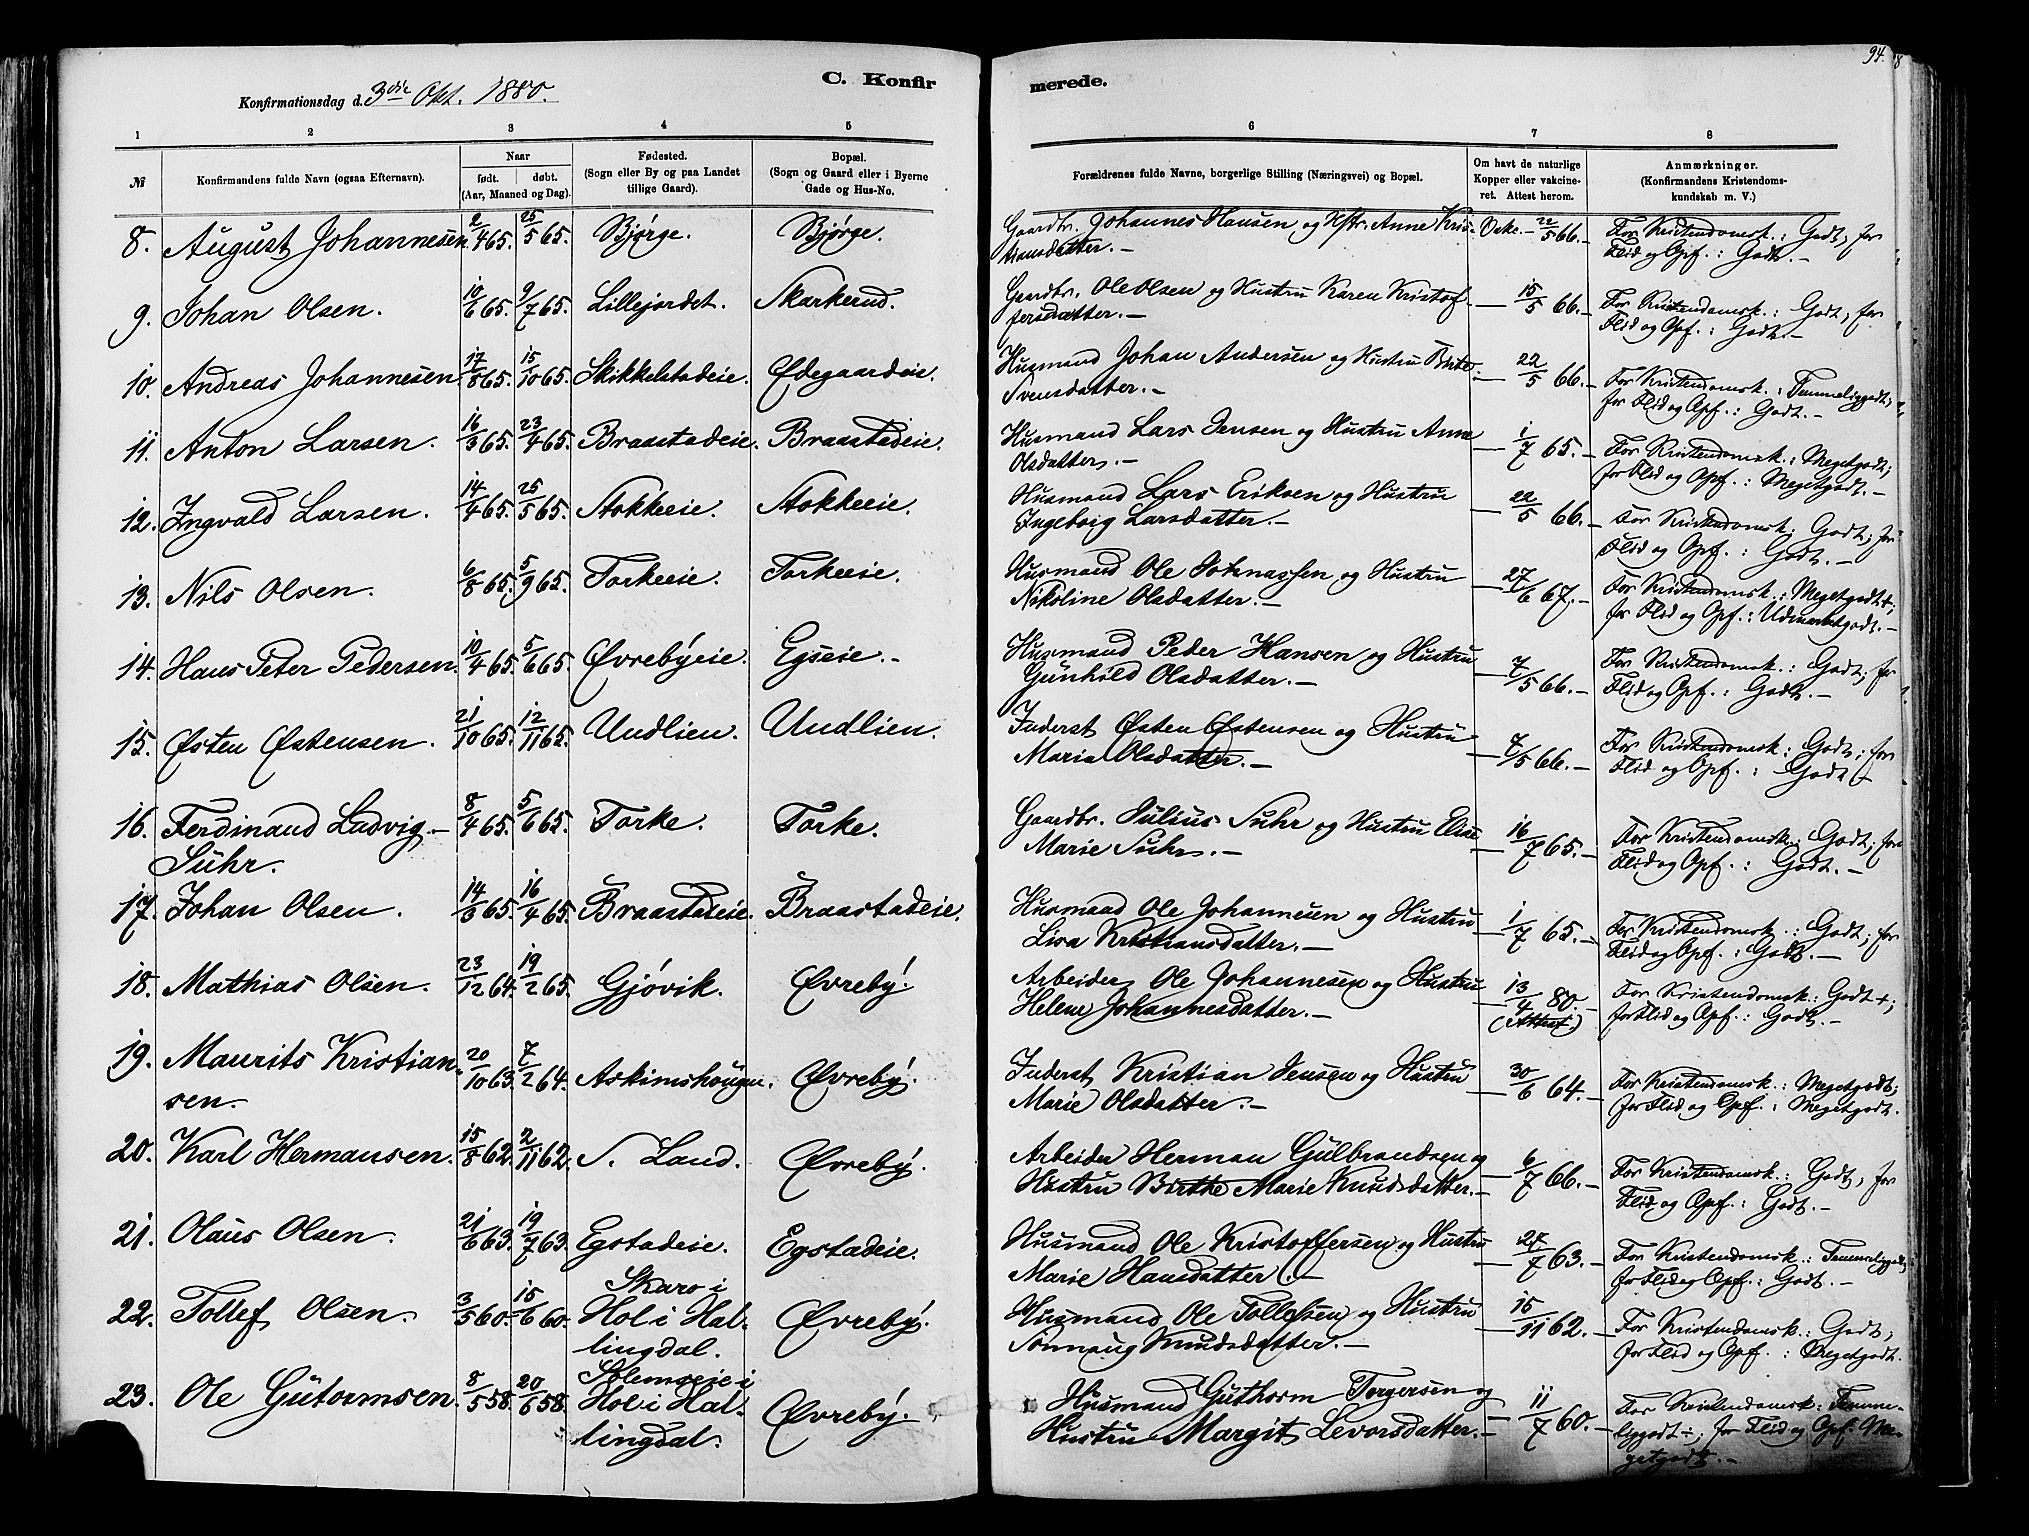 94.
C. Konfirmerede.
Konfirmationsdag d. 3die Okt. 1880.
1 2 3 4 5 6 7 8
№
Konfirmandens fulde Navn (ogsaa Efternavn).
Naar
født. døbt.
(Aar, Maaned og Dag).
Fødested.
(Sogn eller By og paa Landet
tillige Gaard).
Bopæl.
(Sogn og Gaard eller i Byerne
Gade og Hus-No.
Forældrenes fulde Navne, borgerlige Stilling (Næringsvei) og Bopæl.
Om havt de naturlige
Kopper eller vakcine-
ret. Attest herom.
Anmærkninger.
(Konfirmandens Kristendoms-
kundskab m. V.)
8. August Johannesen 2/4 65. 25/5 65. Bjørge. Bjørge. Gaardbr. Johannes Hansen og Hstr. Anne Kris- Vakc. – 22/5 66. – For Kristendomsk.: Godt; for
tiansdatter. – Flid og Opf.: Godt. –
9. Johan Olsen. 10/6 65. 9/7 65. Lillejordet. Skarkerud. Gaardbr. Ole Olsen og Hustru Karen Kristof- – 15/5 66. – For Kristendomsk.: Godt; for
fersdatter. – Flid og Opf.: Godt. –
10. Andreas Johannesen. 17/8 65. 15/10 65. Skikkelstadeie. Ødegaardeie. Husmand Johan Andersen og Hustru Birte – 22/5 66. – For Kristendomsk.: Temmeliggodt;
Svensdatter. – for Flid og Opf.: Godt. –
11. Anton Larsen. 16/3 65. 23/4 65. Braastadeie. Braastadeie. Husmand Lars Jensen og Hustru Anne – 1/7 65. – For Kristendomsk.: Megetgodt;
Olsdatter. – for Flid og Opf.: Megetgodt. –
12. Ingvald Larsen. 14/4 65. 25/5 65. Stokkeeie. Stokkeeie. Husmand Lars Eriksen og Hustru – 22/5 66. – For Kristendomsk. Godt; for
Ingeborg Larsdatter. – Flid og Opf.: Godt. –
13. Nils Olsen. 6/8 65. 5/9 65. Torkeeie. Torkeeie. Husmand Ole Johnassen og Hustru – 27/6 67. – For Kristendomsk.: Megetgodt+;
Nikoline Olsdatter. – for Flid og Opf.: Udmærketgodt. –
14. Hans Peter Pedersen. 10/4 65. 5/6 65. Øvrebyeie. Egseie. – Husmand Peder Hansen og Hustru – 7/5 66. – For Kristendomsk.: Godt; for
Gunhild Olsdatter. – Flid og Opf.: Godt. –
15. Østen Østensen. 21/10 65. 12/11 65. Undlien. Undlien. Inderst Østen Østensen og Hustru – 7/5 66. – For Kristendomsk.: Godt; for
Maria Olsdatter. – Flid og Opf.: Godt –
16. Ferdinand Ludvig – 8/4 65. 5/6 65. Torke. Torke. Gaardbr. Julius Suhr og Hustru Elise – 16/7 65. – For Kristendomsk.: Godt; for
Suhr. Marie Suhr. – Flid og Opf.: Godt. –
17. Johan Olsen. 14/3 65. 16/4 65. Braastadeie. Braastadeie. Husmand Ole Johannesen og Hustru – 1/7 65. – For Kristendomsk.: Godt; for
Lisa Kristiansdatter. – Flid og Opf.: Godt. –
18. Mathias Olsen. 23/12 64. 19/2 65. Gjøvik. Øvreby. Arbeider Ole Johannesen og Hustru – 13/4 80. – For Kristendomsk.: Godt+;
Helene Johannesdatter. – (Attest) for Flid og Opf.: Godt. –
19. Maurits Kristian- 20/10 63. 7/2 64. Askimshougen. Øvreby. Inderst Kristian Jensen og Hustru – 30/6 64. – For Kristendomsk.: Megetgodt;
sen. Marie Olsdatter. – for Flid og Opf.: Megetgodt.
20. Karl Hermansen. 15/8 62. 2/11 62. S. Land. Øvreby. Arbeider Herman Gulbrandsen og – 6/7 66. – For Kristendomsk.: Godt, for
Hustru Birthe Marie Knudsdatter. – Flid og Opf.: Godt. –
21. Olaus Olsen. 21/6 63. 19/7 63. Egstadeie. Egstadeie. Husmand Ole Kristoffersen og Hustru – 27/7 63. – For Kristendomsk.: Temmeliggodt;
Marie Hansdatter. – for Flid og Opf.: Godt. –
22. Tollef Olsen. 3/5 60. 15/6 60. Skaro i Øvreby. Husmand Ole Tollefsen og Hustru – 15/11 62. – For Kristendomsk.: Godt,
Hol i Hal- Sønnaug Knudsdatter. – for Flid og Opf.: Megetgodt.
lingdal.
23. Ole Gutormsen. 8/5 58. 20/6 58. Solemseie i Øvreby. Husmand Guthorm Torgersen og – 11/7 60. – For Kristendomsk.: Temme-
Hol i Hal- Hustru Margit Levorsdatter. – liggodt÷; for Flid og Opf.: Me-
lingdal. getgodt. –